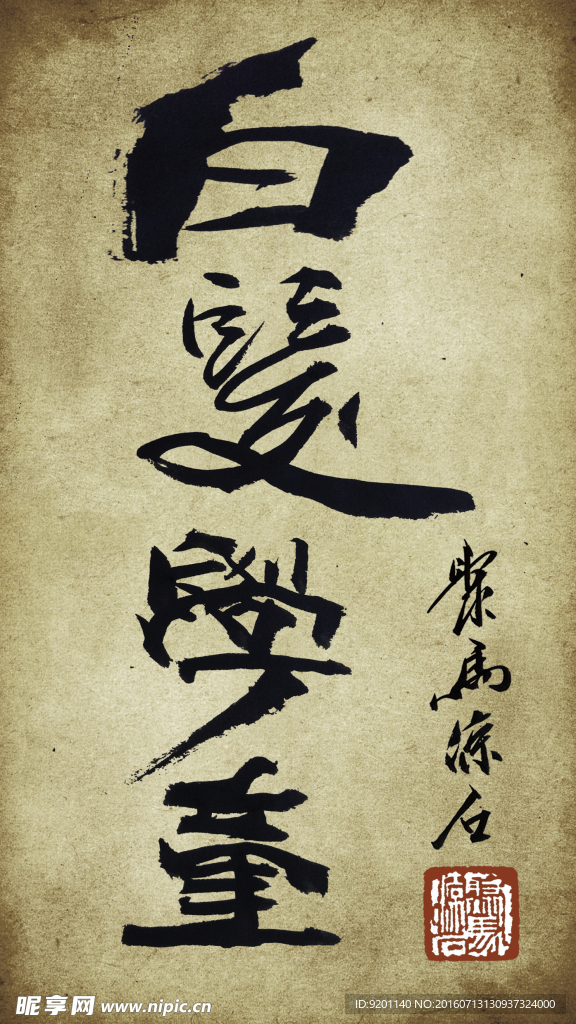 白髮學童
聚馬石
昵享网 www.nipic.cn
ID:9201140 NO:20160713130937324000